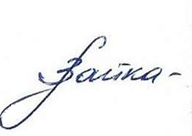 Зайка-